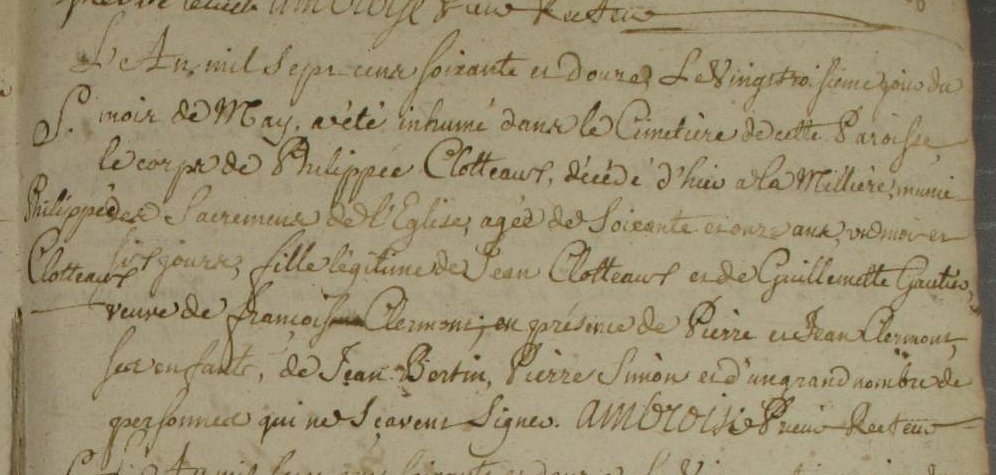 ambroise Prieur Recteur
L'An mil sept cens soixante et douze, Le Vingt troisième jour du
S. mois de May, a été inhumé dans le Cimetière de cette Paroisse,
le corps de Philippée Clotteaux, décédé d'hier a la Millière, munie
Philippée des Sacremens de l'Eglise, agée de Soixante et onze ans, un mois et
Clotteaux six jours, fille légitime de Jean Clotteaux et de Guillemette Gautier,
veuve de françois Clermont, en présence de Pierre et Jean Clermont,
ses enfants, de Jean Bertin, Pierre Simon et d'un grand nombre de
personnes qui ne sçavent signer. ambroise Prieur Recteur